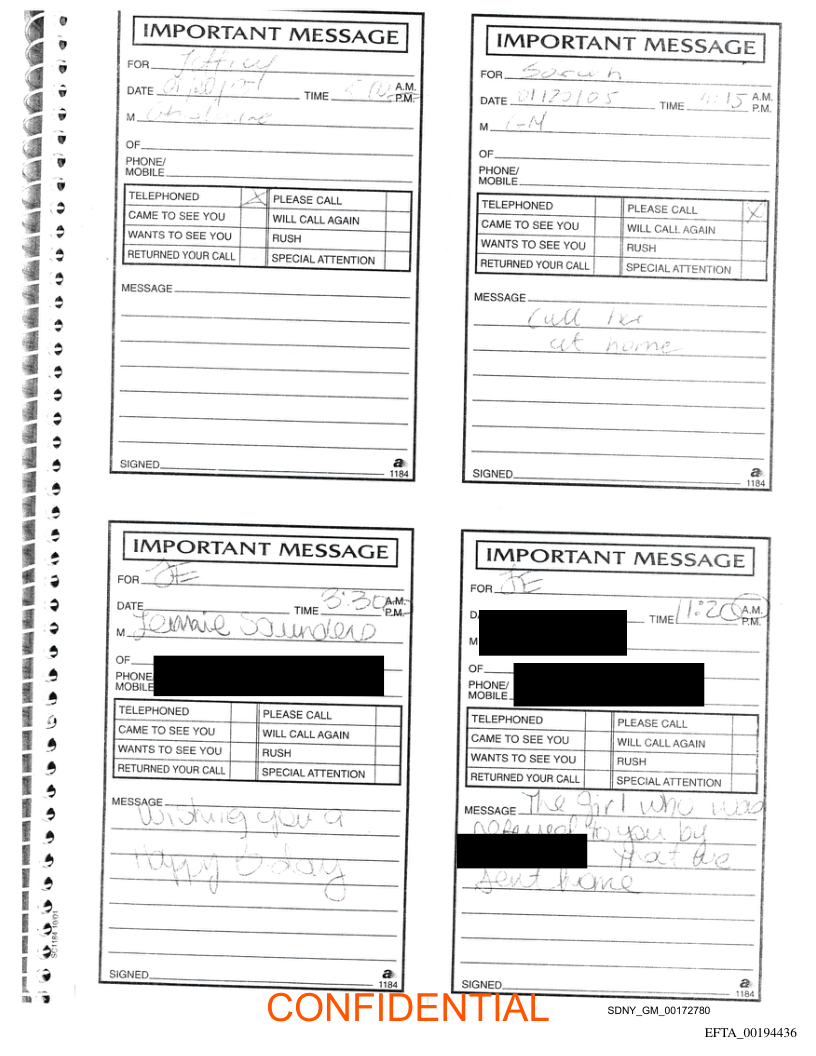 IMPORTANT MESSAGE
FOR Jeffrey
DATE TIME A.M.
P.M.
M
OF
PHONE/
MOBILE
TELEPHONED X PLEASE CALL
CAME TO SEE YOU WILL CALL AGAIN
WANTS TO SEE YOU RUSH
RETURNED YOUR CALL SPECIAL ATTENTION
MESSAGE
SIGNED
a
1184
IMPORTANT MESSAGE
FOR Sarah
DATE 01/20/05 TIME 4:15 A.M.
P.M.
M GM
OF
PHONE/
MOBILE
TELEPHONED PLEASE CALL X
CAME TO SEE YOU WILL CALL AGAIN
WANTS TO SEE YOU RUSH
RETURNED YOUR CALL SPECIAL ATTENTION
MESSAGE
Call her
at home
SIGNED
a
1184
IMPORTANT MESSAGE
FOR JE
DATE TIME 3:30 A.M.
P.M.
M Jennie Saunders
OF
PHONE/
MOBILE
TELEPHONED PLEASE CALL
CAME TO SEE YOU WILL CALL AGAIN
WANTS TO SEE YOU RUSH
RETURNED YOUR CALL SPECIAL ATTENTION
MESSAGE
Wishing you a
Happy B-day
SIGNED
a
1184
IMPORTANT MESSAGE
FOR JE
TIME 11:20 A.M.
P.M.
M
OF
PHONE/
MOBILE
TELEPHONED PLEASE CALL
CAME TO SEE YOU WILL CALL AGAIN
WANTS TO SEE YOU RUSH
RETURNED YOUR CALL SPECIAL ATTENTION
MESSAGE The girl who was
referred to you by
that we
sent home
SIGNED
a
1184
SC1184 10/01
CONFIDENTIAL
SDNY_GM_00172780
EFTA_00194436